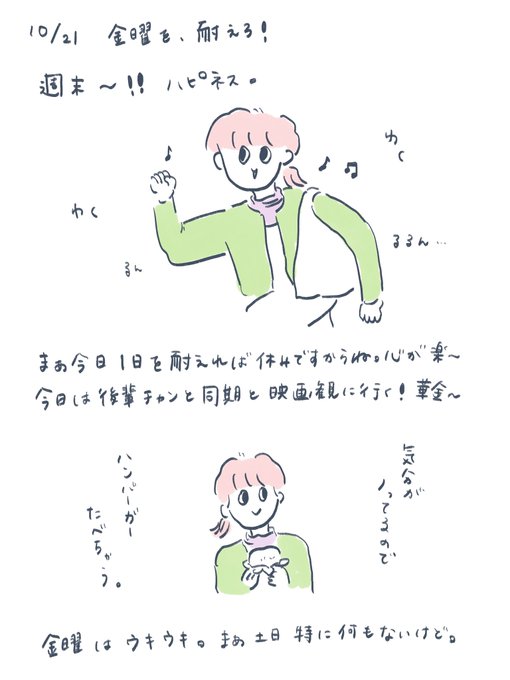 10/21 金曜を、耐えろ!
週末〜!! ハピネス。
わく
わく
るん
るるん…
まぁ今日1日を耐えれば休みですからね。心が楽〜
今日は後輩チャンと同期と映画観に行く!華金〜
気分が
ノッてるので
ハンバーガー
たべちゃう。
金曜はウキウキ。まぁ土日特に何もないけど。